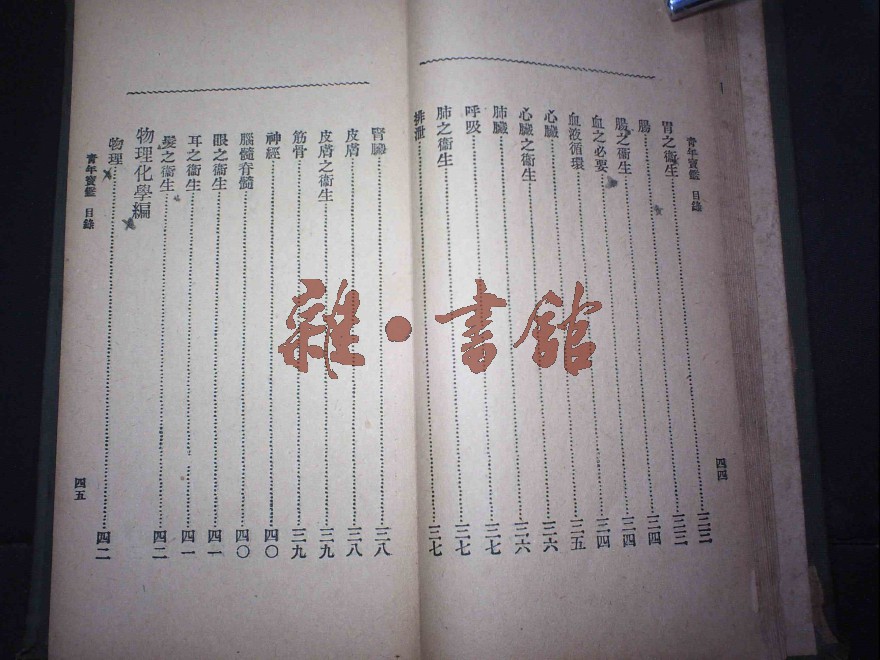 青年寶鑑 目錄
胃之衛生 三三
腸 三三
腸之衛生 三四
血之必要 三四
血液循環 三四
心臟 三五
心臟之衛生 三六
肺臟 三六
呼吸 三七
肺之衛生 三七
排泄 三七
四四
腎臟 三八
皮膚 三八
皮膚之衛生 三九
筋骨 三九
神經 四〇
腦髓脊髓 四〇
眼之衛生 四一
耳之衛生 四一
髮之衛生 四二
物理化學編
物理 四二
青年寶鑑 目錄
四五
雜·書館